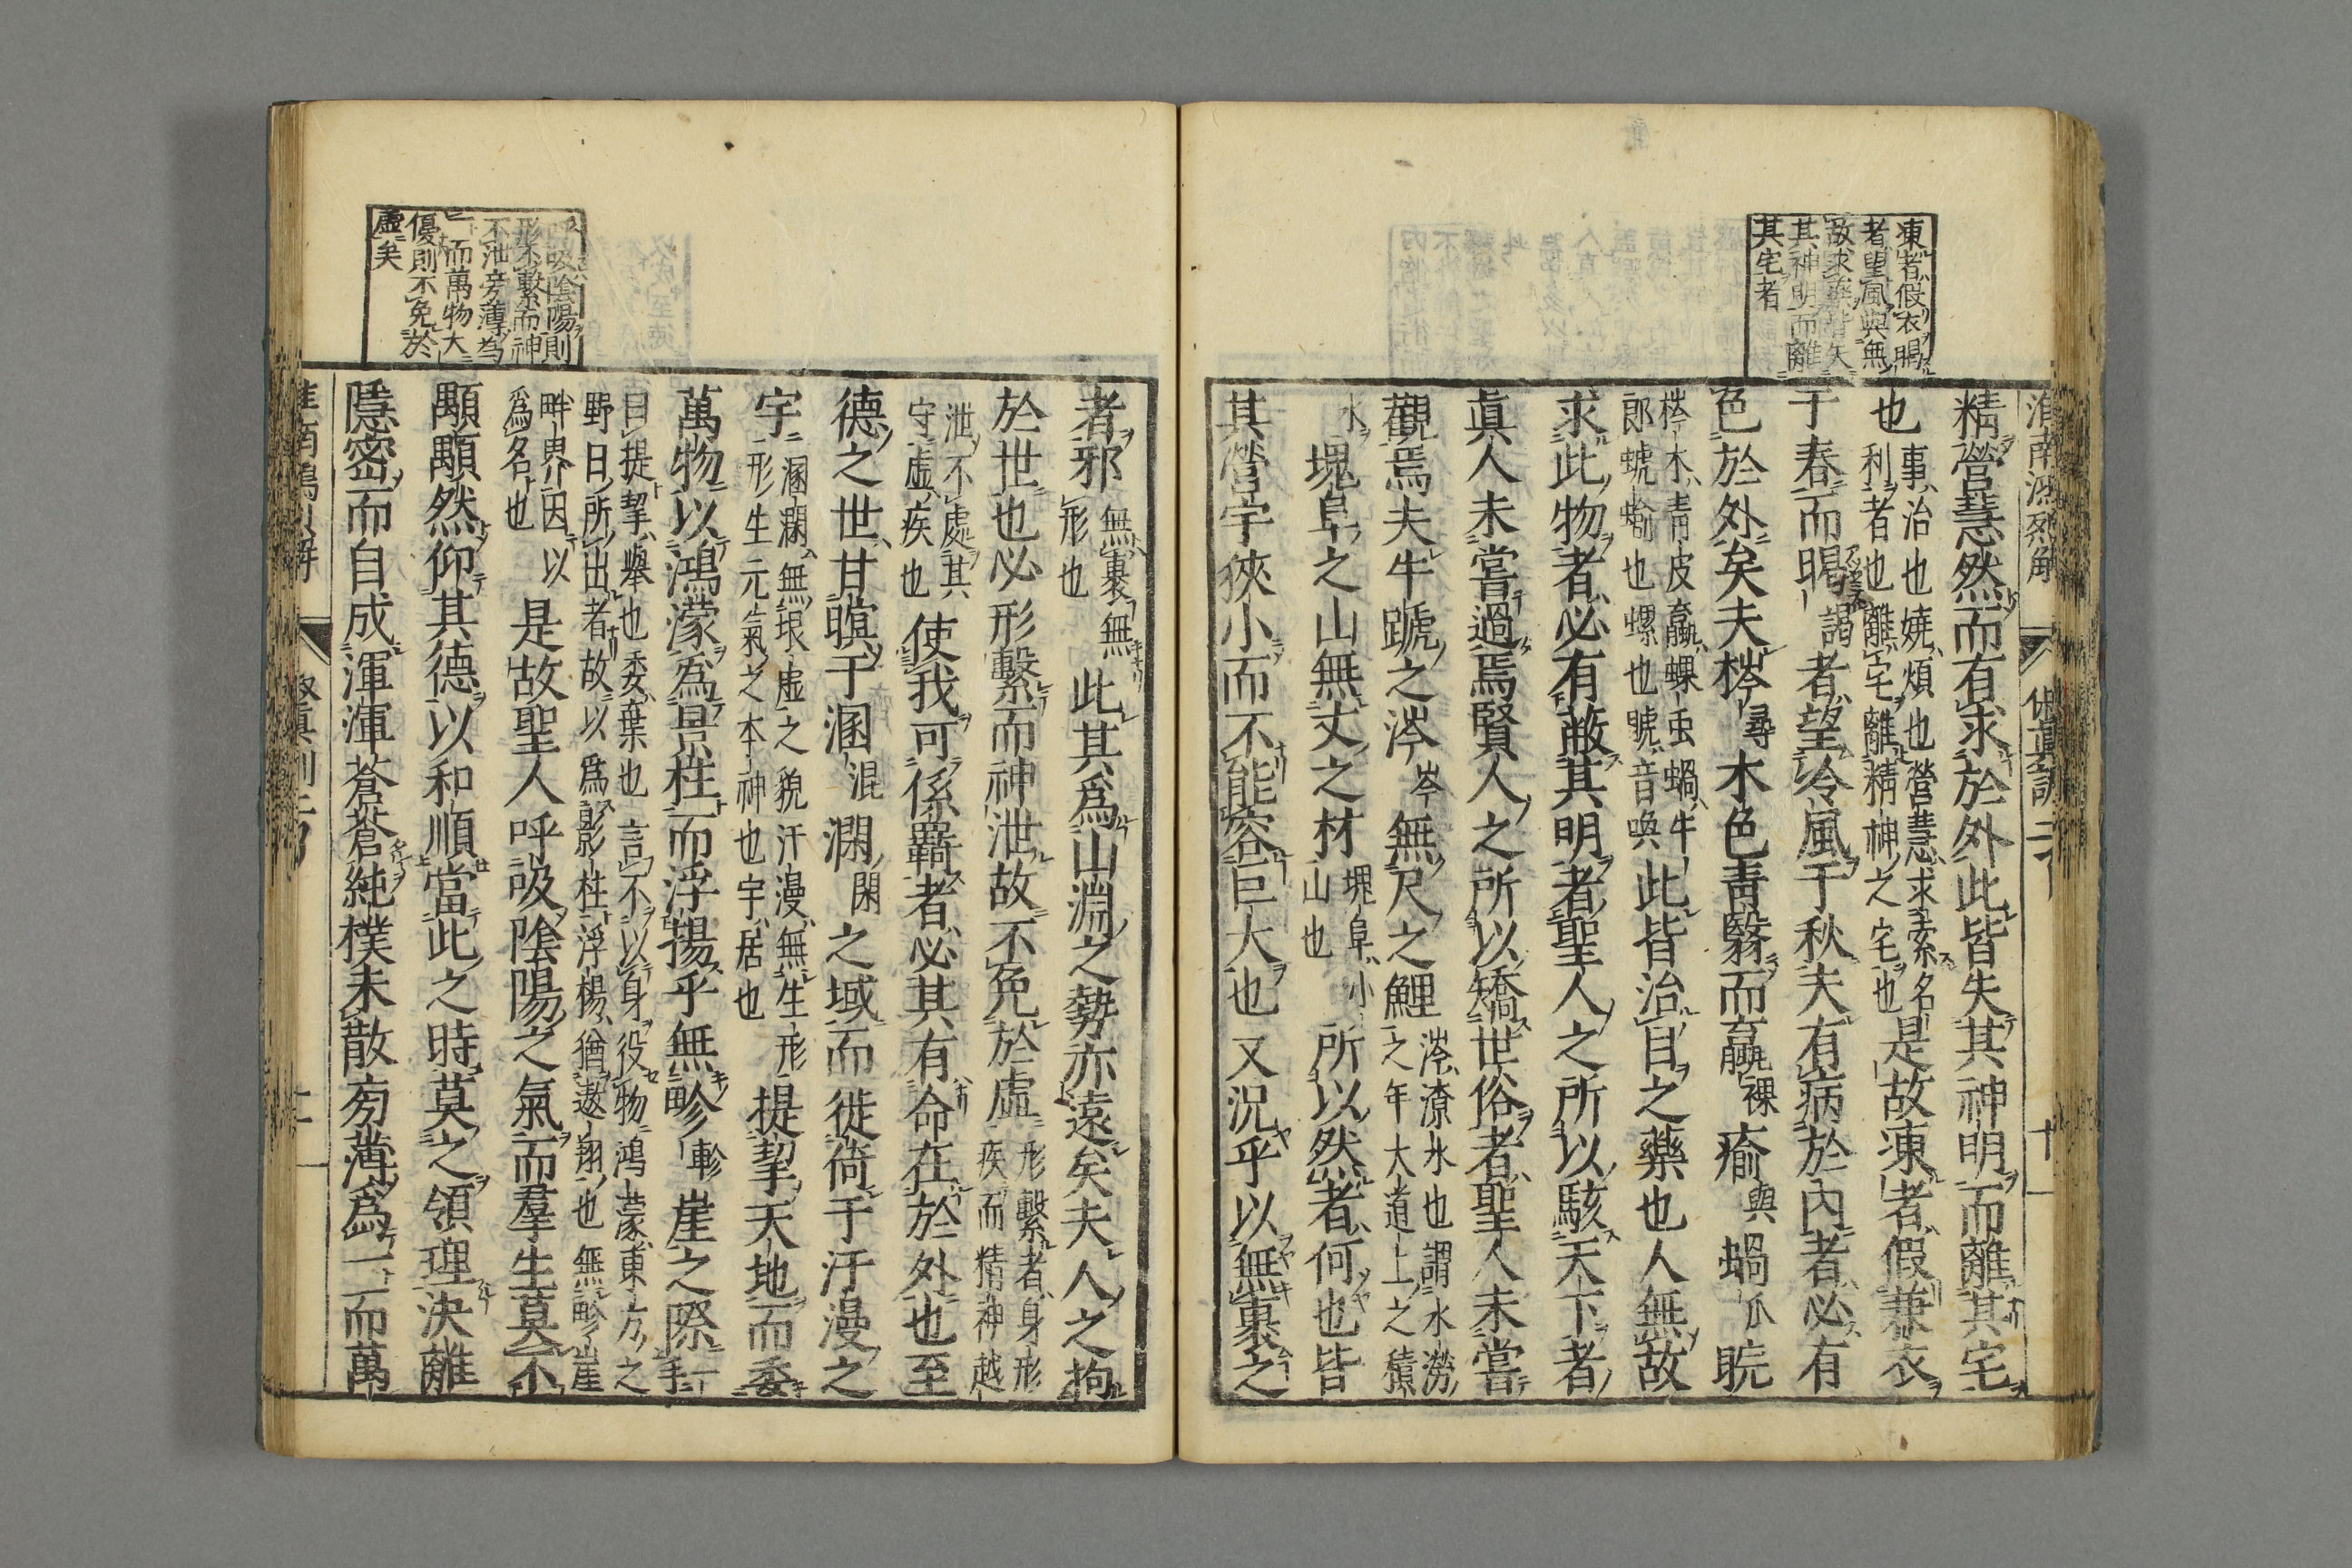 淮南鴻烈解 俶眞訓二
凍者假衣暍
者望風與無
故求藥皆失
其神明而離
其宅者
精營慧然而有求於外此皆失其神明而離其宅
也事治也嬈煩也營慧求索名利者也離宅離精神之宅也是故凍者假兼衣
于春而暍謁者望冷風于秋夫有病於內者必有
色於外矣夫梣尋木色靑翳而蠃裸瘉與蝸瓜睆
梣木靑皮蠃螺虫蝸牛郞螔蝓也螺也螔音喚此皆治目之藥也人無故
求此物者必有蔽其明者聖人之所以駭天下者
眞人未嘗過焉賢人之所以矯世俗者聖人未嘗
觀焉夫牛蹏之涔岑無尺之鯉涔潦水也謂水潦之年大道上之積
水塊阜之山無丈之材塊阜小山也所以然者何也皆
其營宇狹小而不能容巨大也又況乎以無裹之
者邪無裹無形也此其爲山淵之勢亦遠矣夫人之拘
於世也必形繫而神泄故不免於虛形繫者身形疾而精神越
泄不處其守虛疾也使我可係羈者必其有命在於外也至
德之世甘瞑于溷混澖閑之域而徙倚于汗漫之
宇溷澖無垠虛之貌汗漫無生形形生元氣之本神也宇居也提挈天地而委
萬物以鴻濛爲景柱而浮揚乎無畛軫崖之際一手
曰提挈擧也委棄也言不以身役物鴻蒙東方之野日所出者故以爲影柱浮楊猶遨翔也無畛崖
畔界因以爲名也是故聖人呼吸陰陽之氣而羣生莫不
顒顒然仰其德以和順當此之時莫之領理決離
隱密而自成渾渾蒼蒼純樸未散旁薄爲一而萬
呼吸陰陽則
形不繫而神
不泄旁薄爲
一而萬物大
優則不免於
虛矣